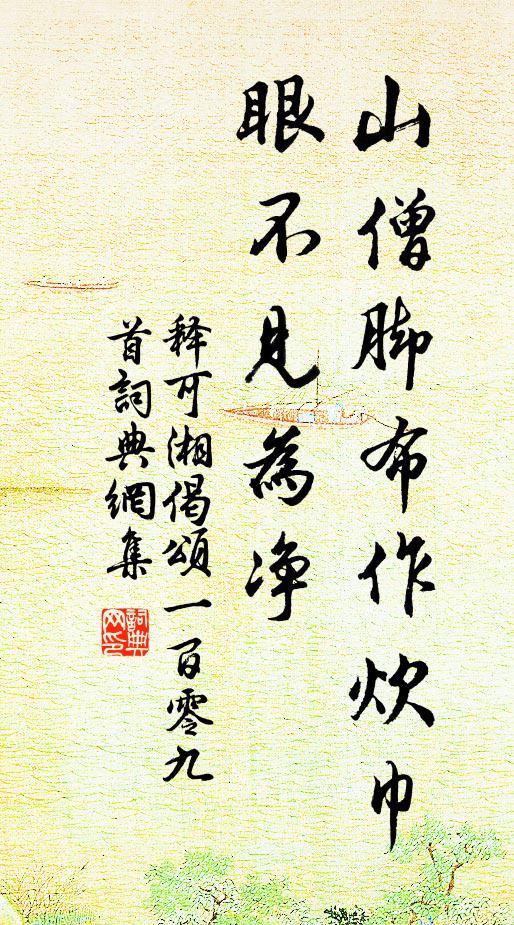 山僧脚布作炊巾
眼不见為净
释可湘偈頌一百零九
首詞典網集
詞典网印